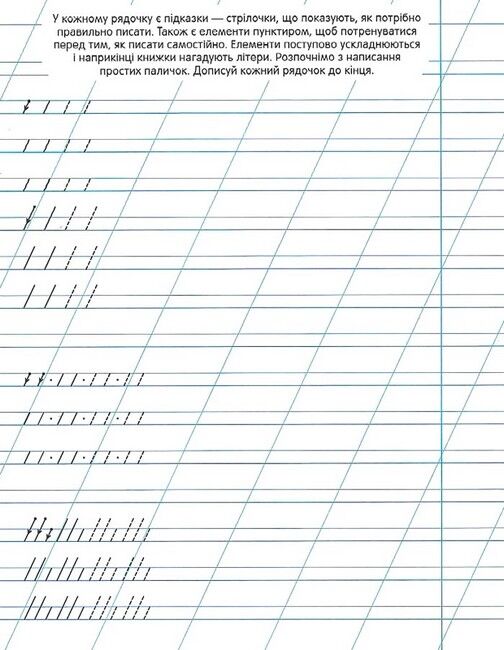 У кожному рядочку є підказки — стрілочки, що показують, як потрібно
правильно писати. Також є елементи пунктиром, щоб потренуватися
перед тим, як писати самостійно. Елементи поступово ускладнюються
і наприкінці книжки нагадують літери. Розпочнімо з написання
простих паличок. Дописуй кожний рядочок до кінця.